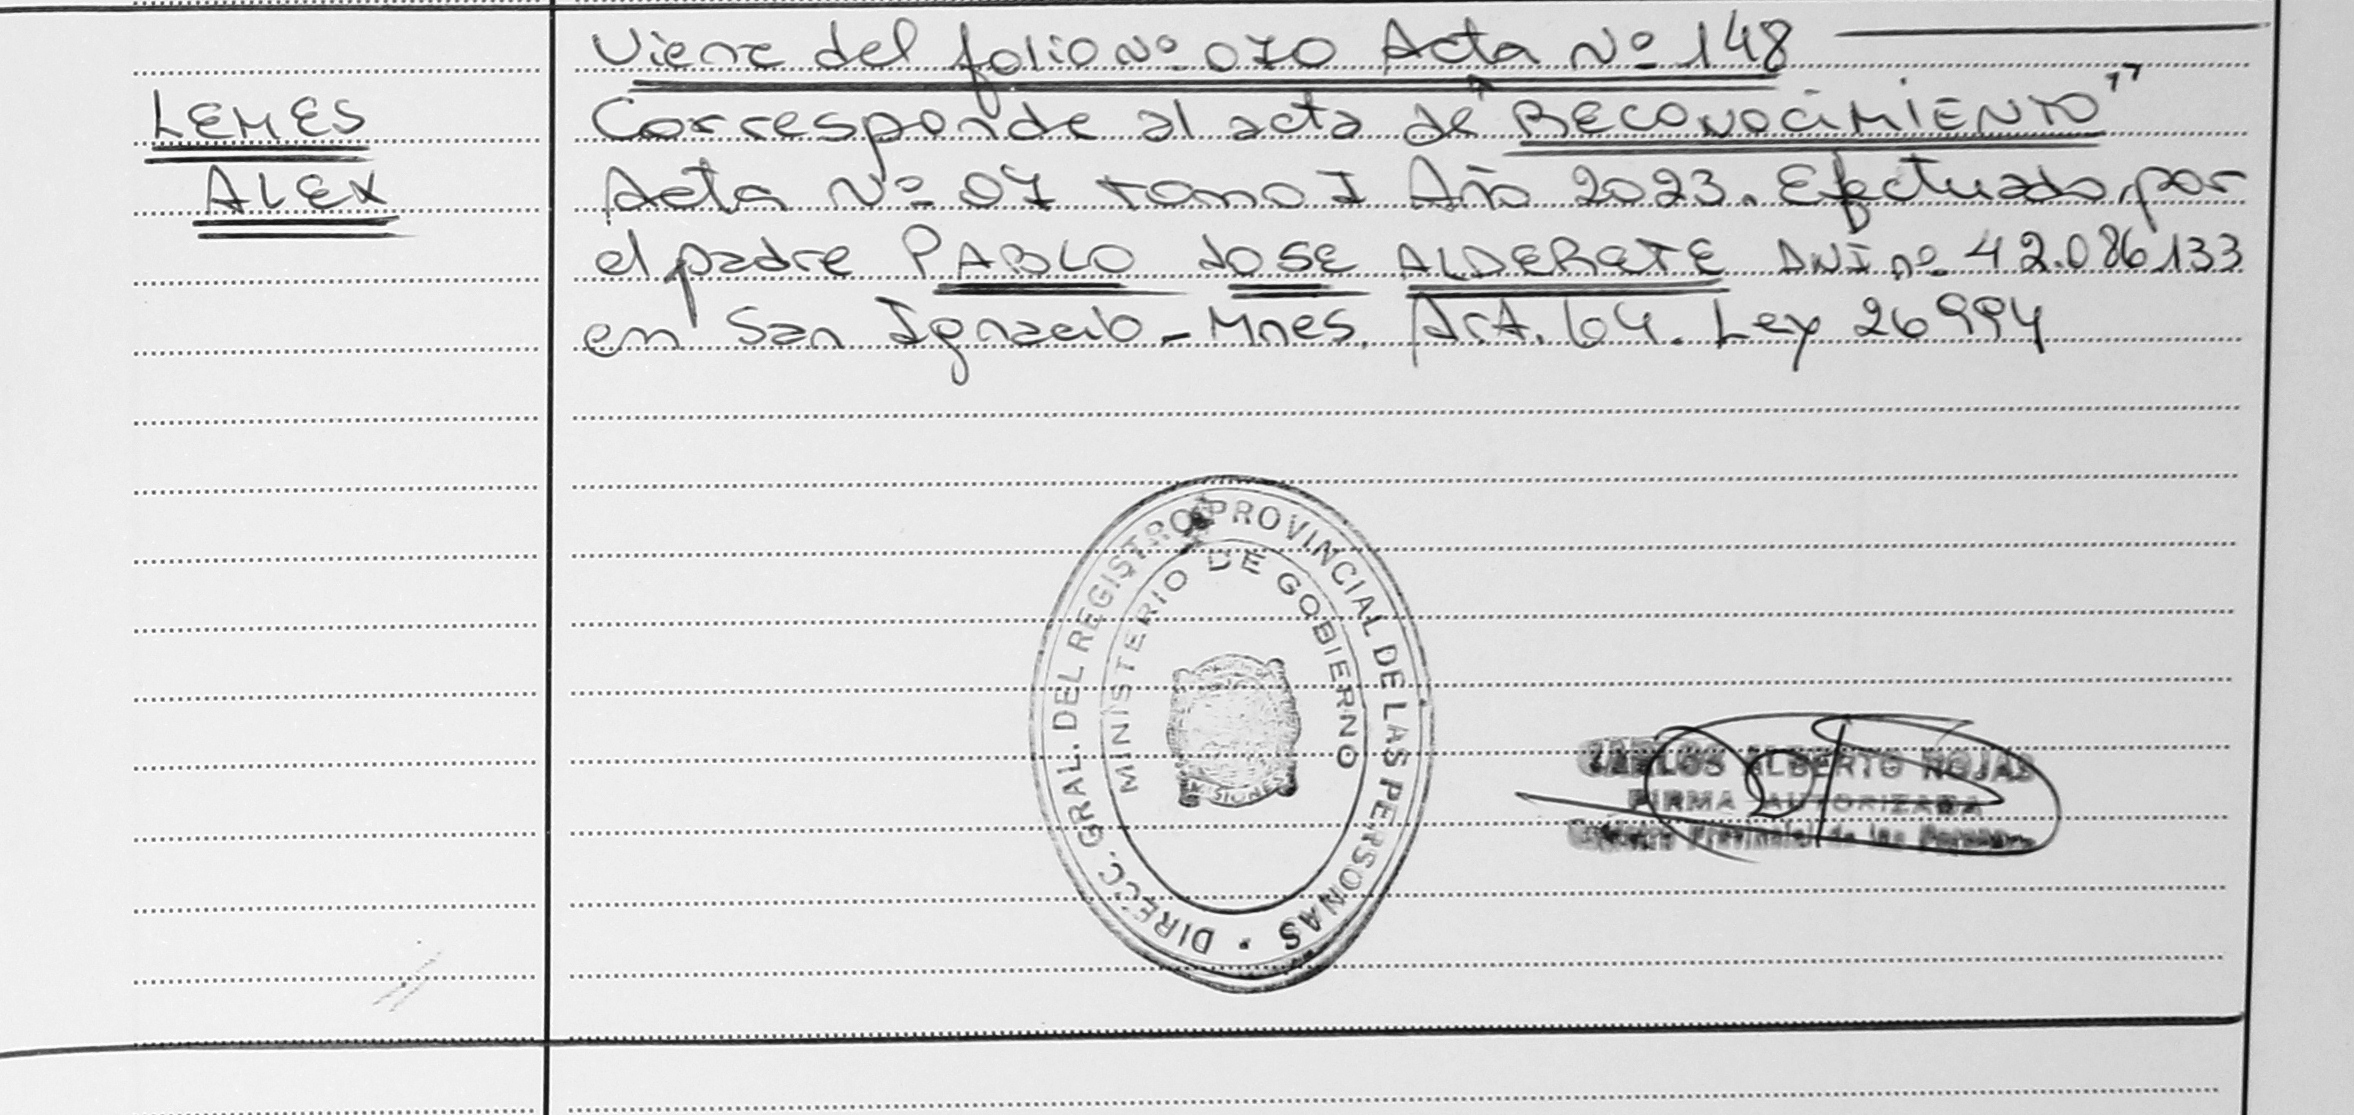 Viene del folio Nº 070 Acta Nº 148
LEMES
ALEX
Corresponde al acta de "RECONOCIMIENTO"
Acta Nº 07 tomo I Año 2023. Efectuado por
el padre PABLO JOSE ALDERETE DNI nº 42.086.133
en San Ignacio - Mnes. Art. 64. Ley 26994
DIRECC. GRAL. DEL REGISTRO PROVINCIAL DE LAS PERSONAS
MINISTERIO DE GOBIERNO
MISIONES
CARLOS ALBERTO ROJAS
FIRMA AUTORIZADA
Provincial de las Personas